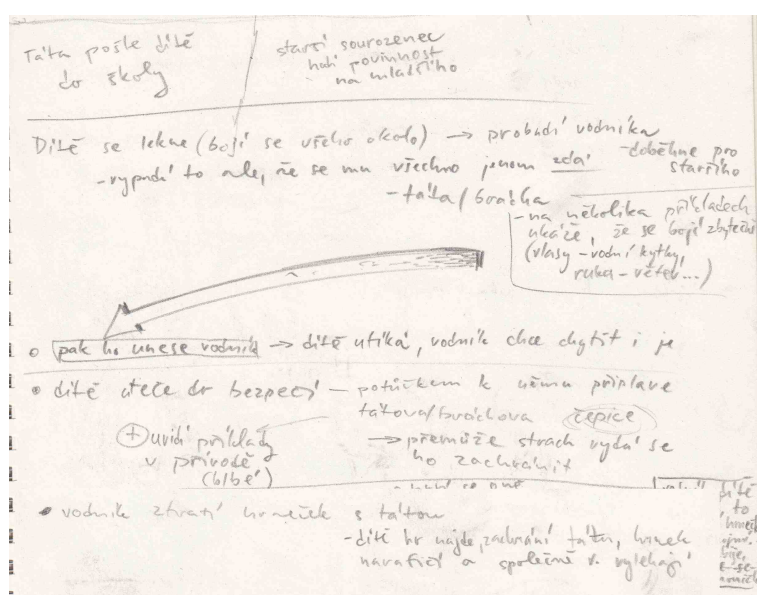 Táta pošle dítě
do školy
starší sourozenec
hodí povinnost
na mladšího
Dítě se lekne (bojí se všeho okolo) → probudí vodníka
- doběhne pro
staršího
- vypadá to ale, že se mu všechno jenom zdá
- táta/brácha
- na několika příkladech
ukáže, že se bojí zbytečně
(vlasy - vodní kytky,
ruka - větev...)
pak ho unese vodník → dítě utíká, vodník chce chytit i je
dítě uteče do bezpečí — potůčkem k němu připlave
tátova/bráchova čepice
+ uvidí příklady
v přírodě
(blbé)
→ přemůže strach vydá se
ho zachránit
vodník ztratí hrneček s tátou
- dítě ho najde, zachrání tátu, hrnek
a společně v. vylekají
dítě
to